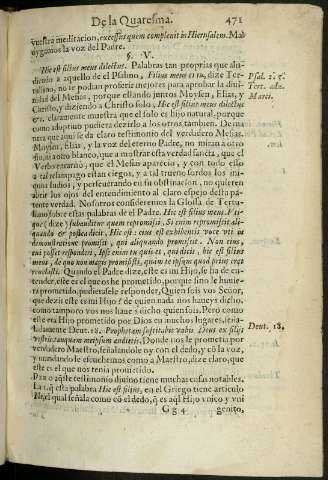 De la Quaresma. 471
vuestra meditacion, excessus quem complevit in Hierusalem. Mas
oygamos la voz del Padre.
§. V.
Hic est filius meus dilectus. Palabras tan proprias que alu-
diendo a aquello de el Psalmo, Filius meus es tu, dize Ter-
tuliano, no se podian proferir mejores para aprobar la divi-
nidad del Mesias, porque estando juntos Moysen, Elias, y
Christo, diziendo a Christo solo, Hic est filius meus dilectus
&c. claramente muestra que el solo es hijo natural, porque
como adoptivo pudiera dezirlo a los otros tambien. De ma
nera que aqui se da claro testimonio del verdadero Mesias,
Moysen, Elias, y la voz del eterno Padre, no miran a otro
hito, ni a otro blanco, que a mostrar esta verdad santa, que el
Verbo encarnò, que el Mesias aparecio, y con todo esso
a tal relampago estan ciegos, y a tal trueno sordos los in-
iquos Iudios, y perseverando en su obstinacion, no quieren
abrir los ojos del entendimiento al claro espejo desta pa-
tente verdad. Nosotros consideremos la Glossa de Tertu-
liano sobre estas palabras de el Padre. Hic est filius meus. Vti-
que (dize) subauditur quem repromissi. Si enim repromissit ali-
quando & postea dicit, Hic est: eius est exhibentis voce vti in
demonstratione promissi, qui aliquando promissit. Non eius,
cui possit responderi, Ipse enim tu quis es, qui dicis, hic est filius
meus, de quo non magis promisisti, quam te ipsum quod prius eras
revelasti. Quando el Padre dize, este es mi Hijo, se ha de en-
tender, este es el que os he prometido, porque sino le huuie-
ra prometido, pudierasele responder, Quien sois vos Señor,
que dezis este es mi Hijo? de quien nada nos haueys dicho,
como tampoco vos nos haue s dicho quien sois. Pero como
este era Hijo prometido por Dios en muchos lugares, seña-
ladamente Deut. 18. Prophetam suscitabit vobis Deus ex filijs
vestris, tanquam meipsum audietis. Donde nos le prometiò por
verdadero Maestro, señalandole oy con el dedo, y cõ la voz,
y mandando le escuchemos como a Maestro, dize claro, que
este es el que nos tenia prometido.
Pero aq̃ste testimonio divino tiene muchas cosas notables.
La 1. q̃ esta palabra Hic est filius, en el Griego tiene articulo
Ho, el qual señala como cõ el dedo, q̃ es aq̃l Hijo vnico y vni
Gg4 genito,
Psal. 2. 7.
Tert. adv.
Marci.
Deut. 18.